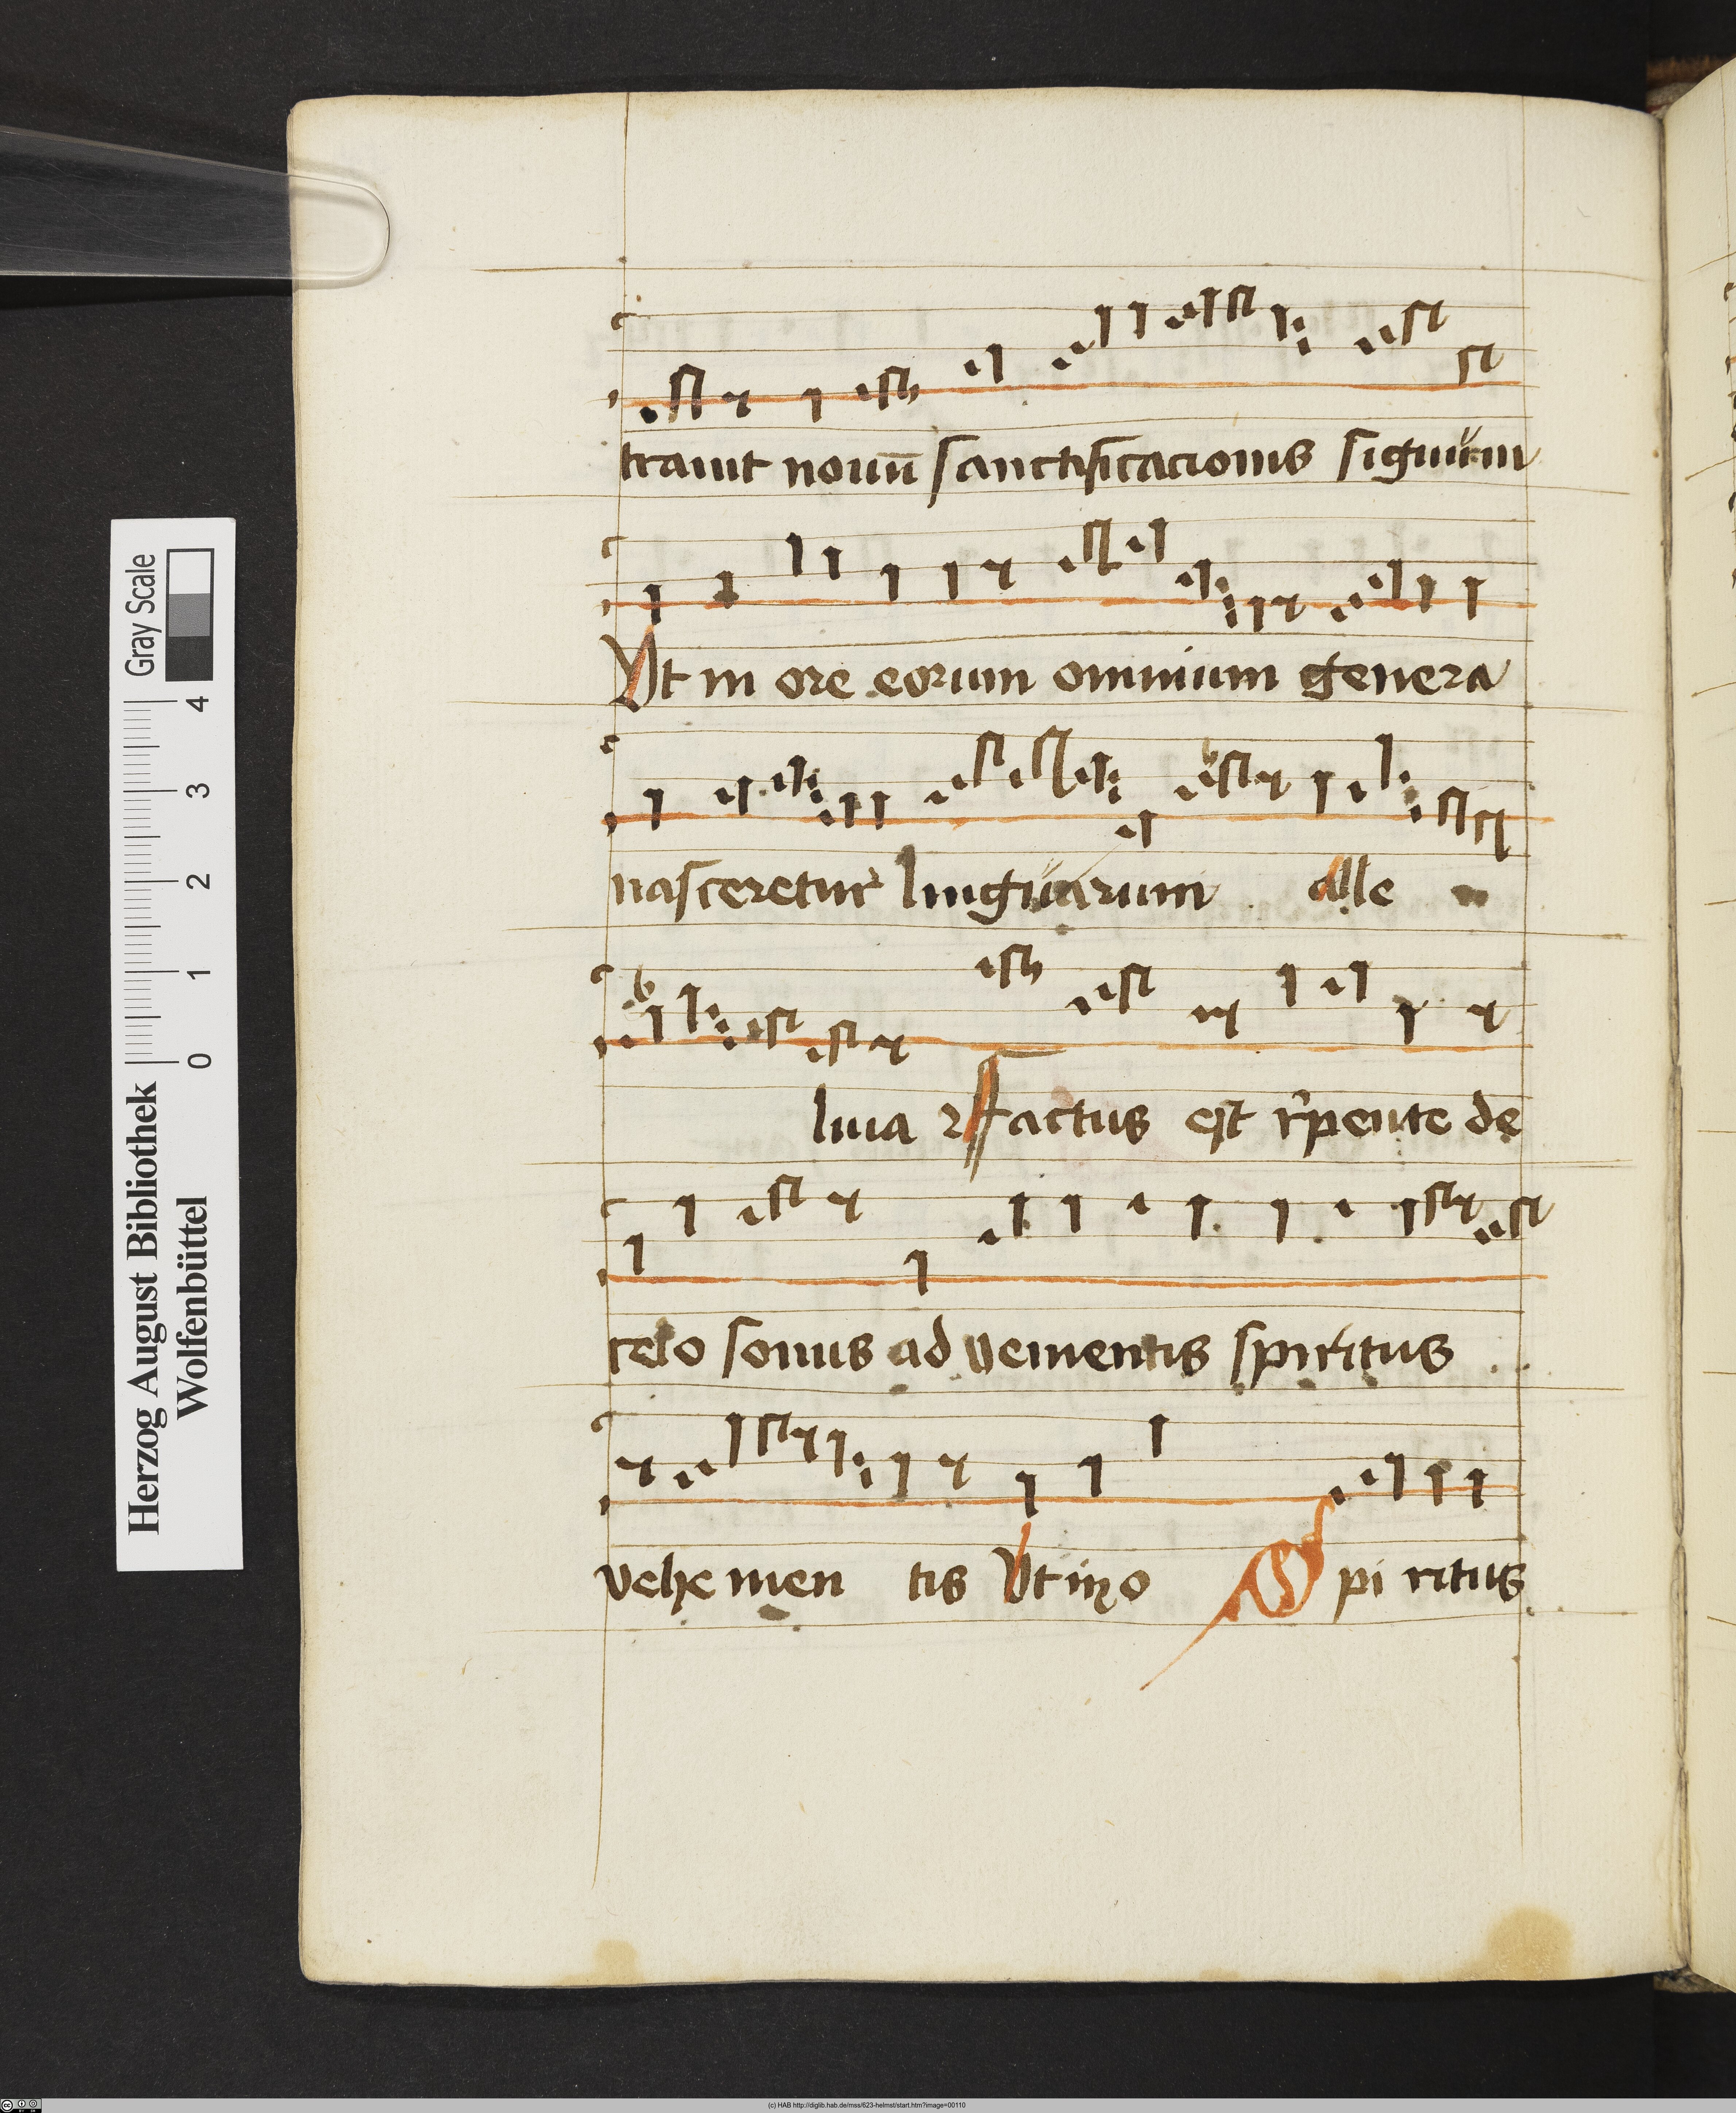 trauit nouū sanctificacionis signum
Vt in ore eorum omnium genera
nasceretur linguarum alle
luia ꝛ Factus est r̓pente de
celo sonus aduenientis spiritus
vehemen tis Vt in o Spi ritus
Herzog August Bibliothek
Wolfenbüttel
0 1 2 3 4
Gray Scale
(c) HAB http://diglib.hab.de/mss/623-helmst/start.htm?image=00110